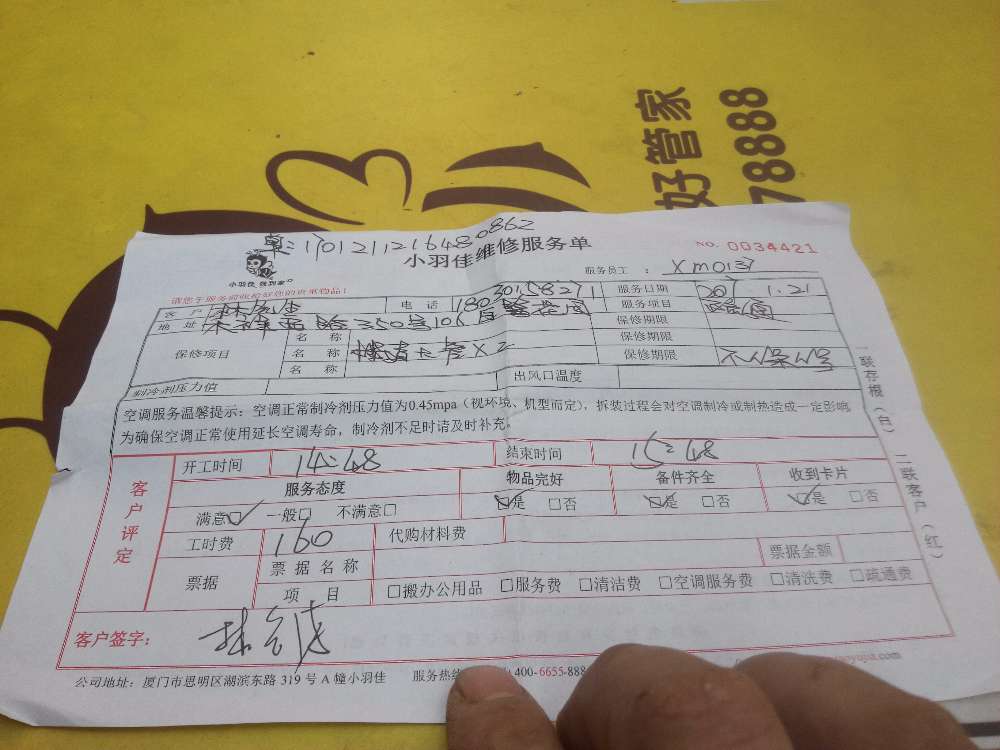 好管家
78888
单:1701211216480862
小羽佳维修服务单
NO. 0034421
小羽佳 做到家
服务员工 : XM0137
请您于服务前收检好您的贵重物品!
客 户 电 话 18030158271 服务日期 2017 1.21
地 址 350号106 服务项目
保修项目 名 称 保修期限
名 称 卡 X2 保修期限
名 称 保修期限 不保修
制冷剂压力值 出风口温度
空调服务温馨提示:空调正常制冷剂压力值为0.45mpa(视环境、机型而定),拆装过程会对空调制冷或制热造成一定影响
为确保空调正常使用延长空调寿命,制冷剂不足时请及时补充。
客户评定
开工时间 14:48 结束时间 15:48
服务态度 物品完好 备件齐全 收到卡片
满意☑ 一般□ 不满意□ ☑是 □否 ☑是 □否 ☑是 □否
工时费 160 代购材料费
票据 票据名称 票据金额
项 目 □搬办公用品 □服务费 □清洁费 □空调服务费 □清洗费 □疏通费
客户签字:
公司地址:厦门市思明区湖滨东路 319 号 A 幢小羽佳 服务热线 400-6655-888
一联存根(白) 二联客户(红)